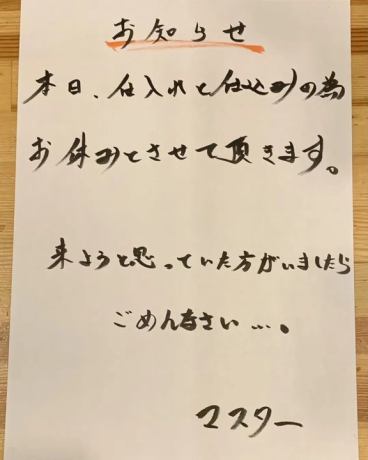 お知らせ
本日、仕入れと仕込みの為
お休みとさせて頂きます。
来ようと思っていた方がいましたら
ごめんなさい…。
マスター